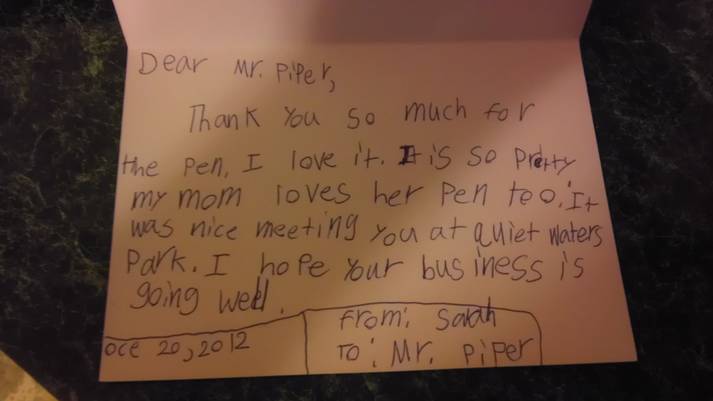 Dear Mr. Piper,
Thank You so much for
the pen, I love it. It is so Pretty
my mom loves her pen too. It
was nice meeting you at quiet waters
Park. I hope your business is
going well.
oct 20, 2012
From: Sarah
To: Mr. Piper